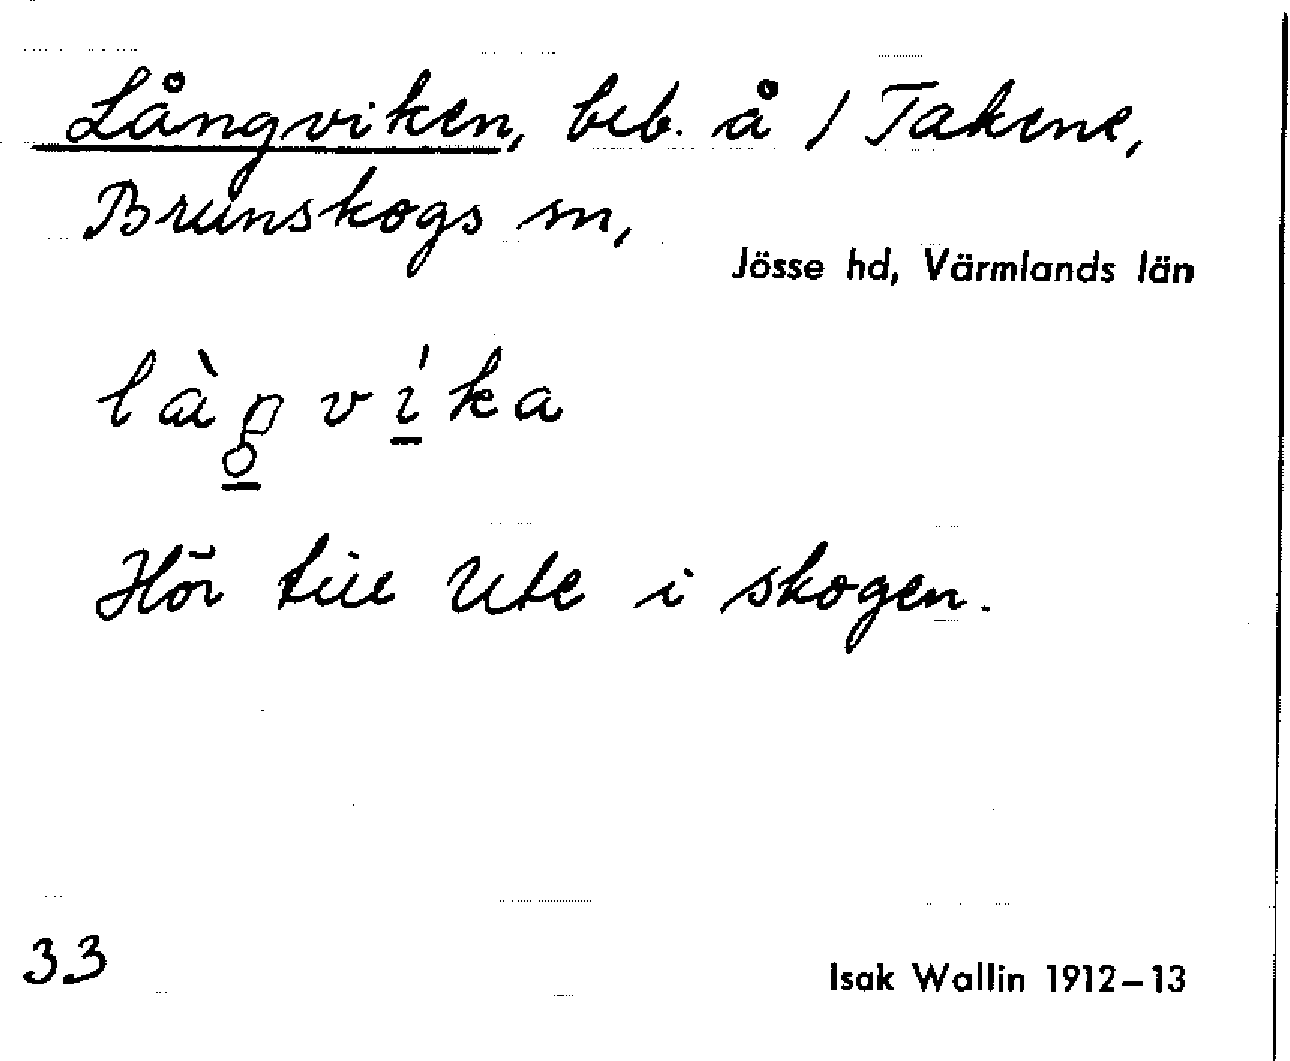 Långviken, beb. å 1 Takene,
Brunskogs sn,
Jösse hd, Värmlands län
Hör till Ute i skogen.
33
Isak Wallin 1912–13